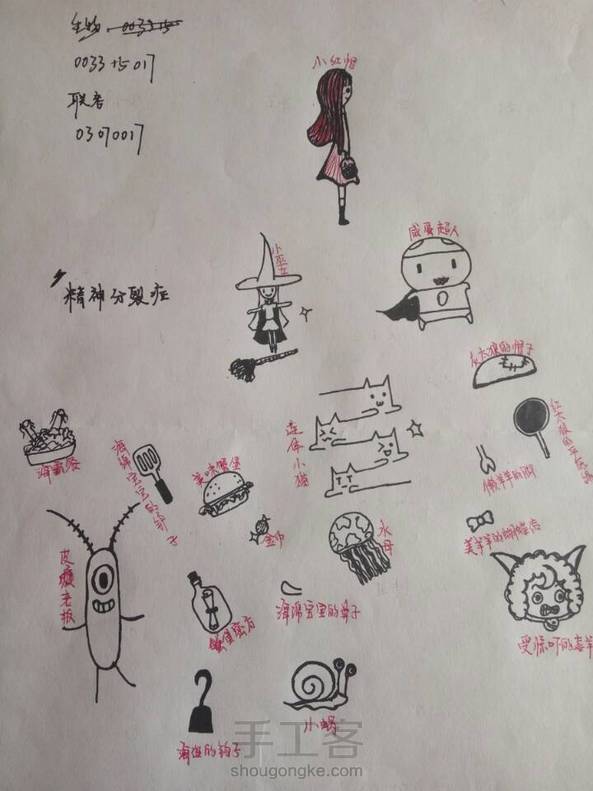 生物:003315
0033 15 017
联考
0307017
精神分裂症
小红帽
小巫女
咸蛋超人
灰太狼的帽子
红太狼的平底锅
连体小猫
懒羊羊的脚
美羊羊的蝴蝶结
受惊吓的喜羊
海霸餐
海绵宝宝的铲子
美味蟹堡
金币
水母
皮老板
蟹堡秘方
海绵宝宝的鼻子
海盗的钩子
小蜗
手工客
shougongke.com